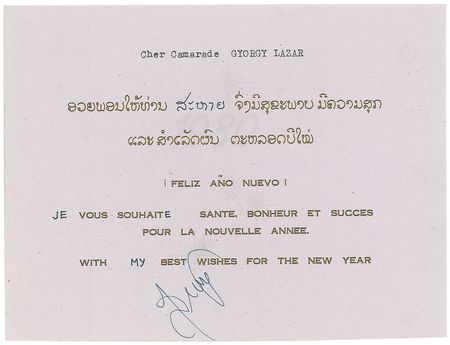 Cher Camarade GYORGY LAZAR
ອວຍພອນໃຫ້ທ່ານ ສະຫາຍ ຈົ່ງມີສຸຂະພາບ ມີຄວາມສຸກ
ແລະ ສຳເລັດຜົນ ຕະຫລອດປີໃໝ່
¡ FELIZ AÑO NUEVO ¡
JE VOUS SOUHAITE SANTE, BONHEUR ET SUCCES
POUR LA NOUVELLE ANNEE.
WITH MY BEST WISHES FOR THE NEW YEAR